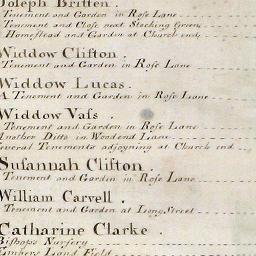 Joseph Britten .
Tenement and Garden in Rose Lane
Tenement and Close next Stocking Green
Homestead and Garden at Church end
Widdow Clifton .
Tenement and Garden in Rose Lane
Widdow Lucas .
A Tenement and Garden in Rose Lane
Widdow Vaſs
Tenement and Garden in Rose Lane
Another Ditto in Woodend Lane
Several Tenements adjoyning at Church end
Susannah Clifton .
Tenement and Garden in Rose Lane
William Carvell .
Tenement and Garden at Long Street
Catharine Clarke .
Bishops Nursery
Embers Land Field